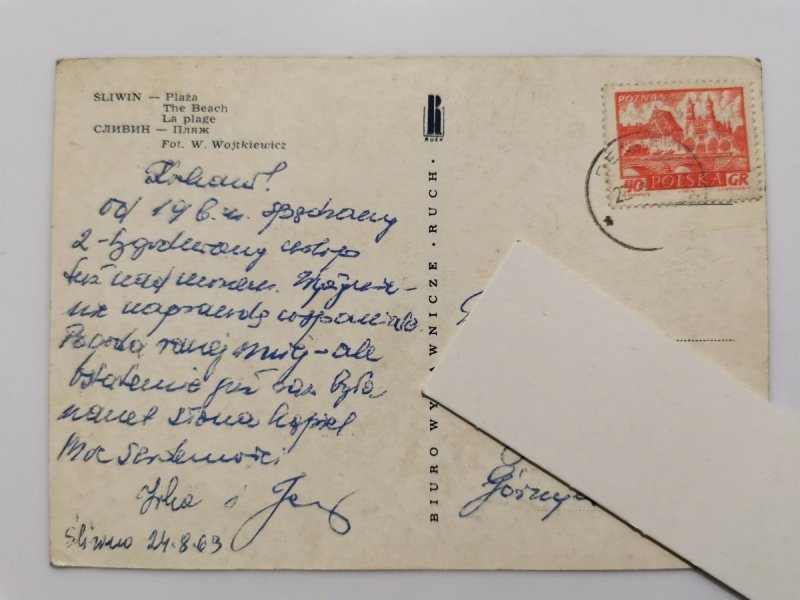 ŚLIWIN — Plaża
The Beach
La plage
СЛИВИН — Пляж
Fot. W. Wojtkiewicz
Kochani!
Od 19 b.m. spędzamy
2-tygodniowy urlop
tuż nad morzem.
naprawdę wspaniale.
Pogoda mniej - ale
ostatnio już była
nawet słona kąpiel
Moc serdeczności
Irka i
Śliwin 24.8.63
RUCH
BIURO WYDAWNICZE · RUCH ·
POZNAŃ
40 POLSKA GR